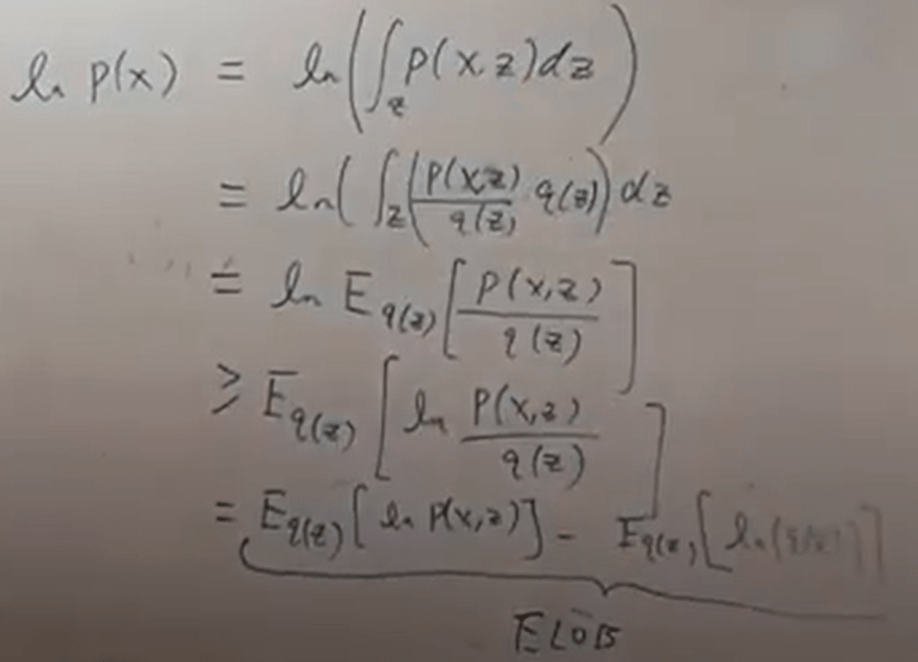 ln p(x) = ln(∫_z p(x,z)dz)
= ln(∫_z(p(x,z)/q(z) · q(z))dz
= ln E_q(z)[p(x,z)/q(z)]
≥ E_q(z)[ln p(x,z)/q(z)]
= E_q(z)[ln p(x,z)] - E_q(z)[ln(q(z))]
ELOB